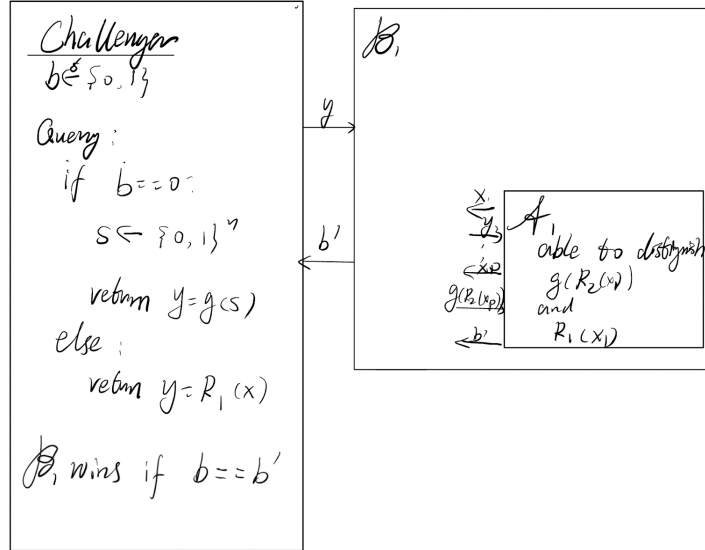 Challenger
b ←$ {0, 1}
Query:
if b==0:
s ← {0, 1}^n
return y = g(s)
else:
return y = R₁(x)
B₁ wins if b==b'
y
b'
B₁
x₁
y₁
A₁
able to distinguish
g(R₂(x₁))
and
R₁(x₁)
b'